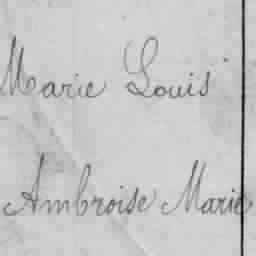 Marie Louis
Ambroise Marie